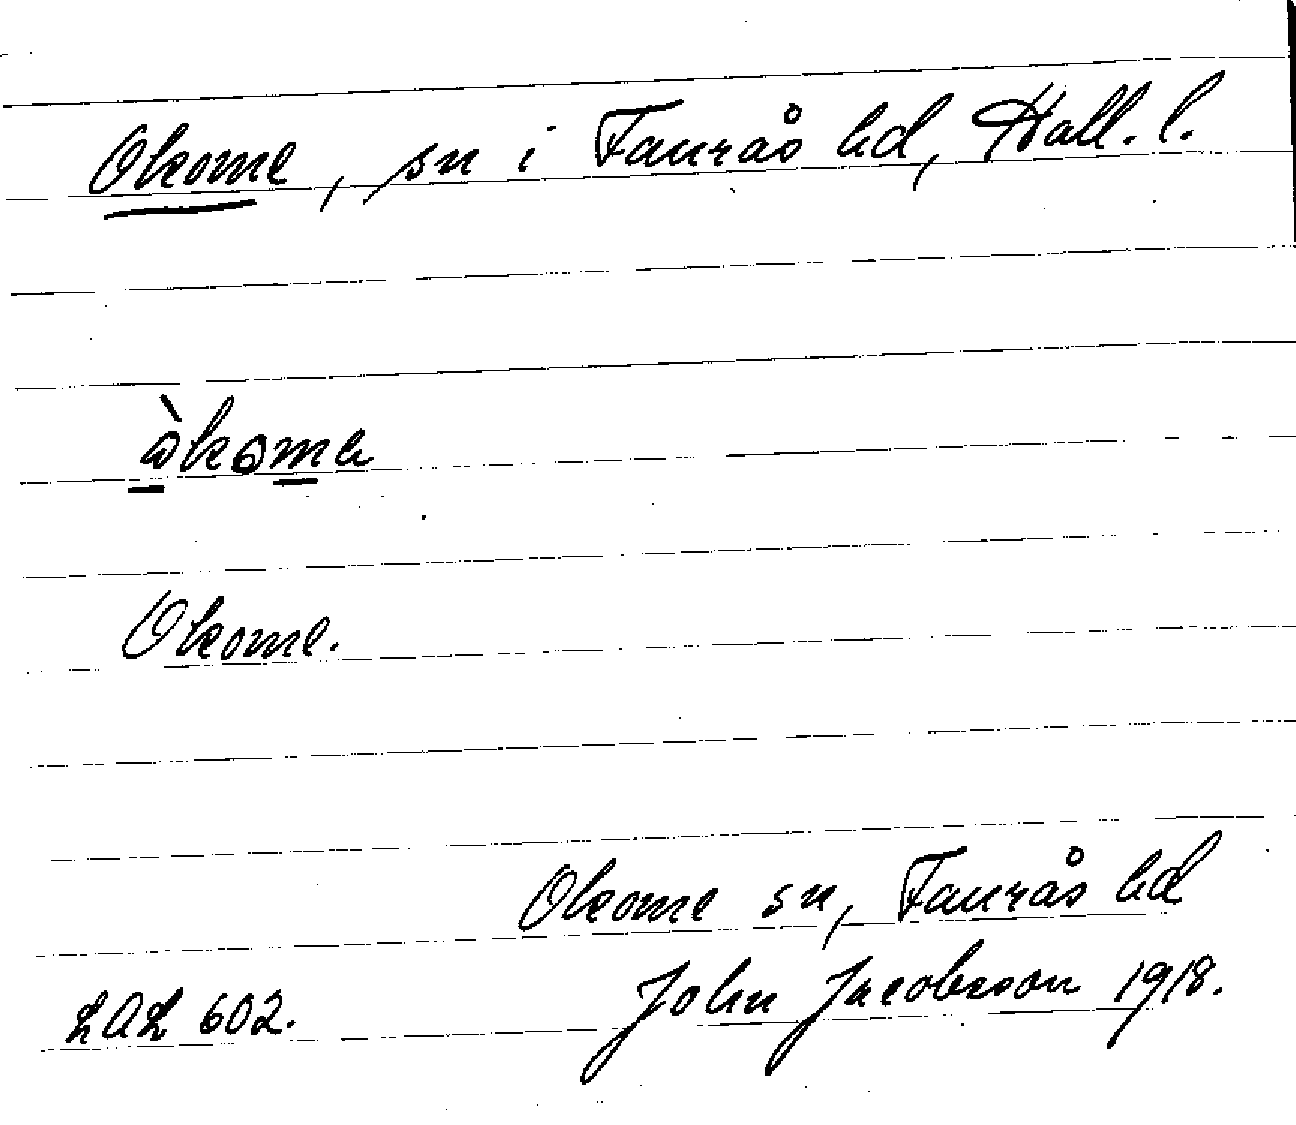 Okome, sn i Faurås hd, Hall. l.
òkome
Okome.
Okome sn, Faurås hd
LAL 602. John Jacobsson 1918.